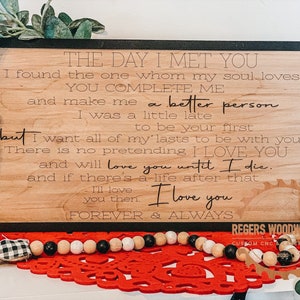 THE DAY I MET YOU
I found the one whom my soul loves
YOU COMPLETE ME
and make me a better person
I was a little late
to be your first
but I want all of my lasts to be with you
There is no pretending I LOVE YOU
and will love you until I die.
and if there's a life after that
I'll love
you then. I love you
{FOREVER & ALWAYS
REGERS WOODW
CUSTOM CNC